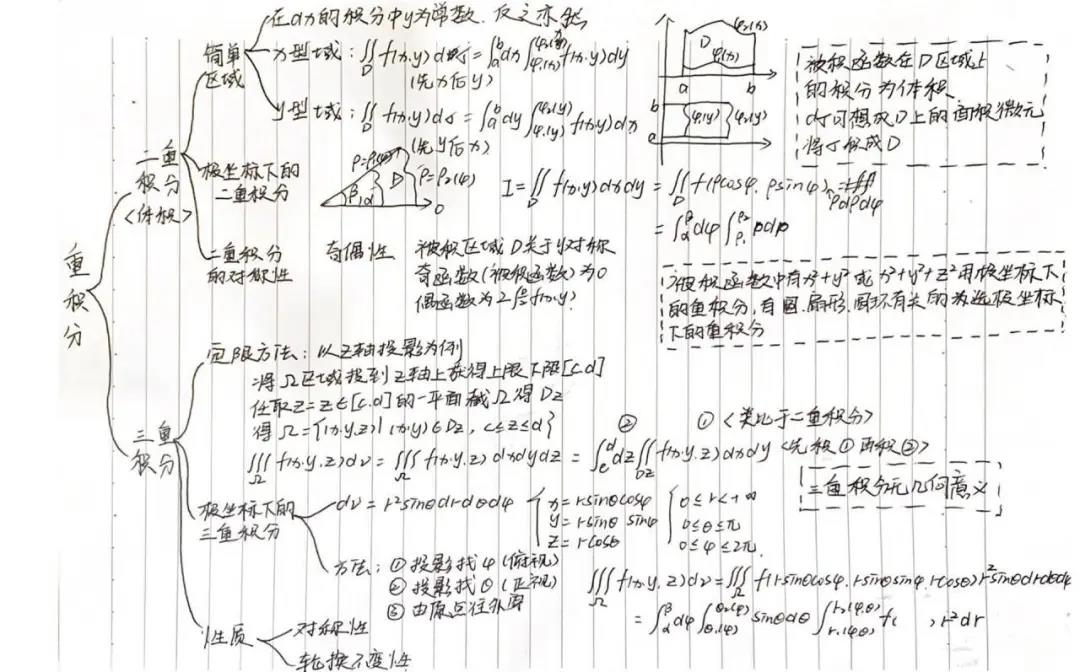 重积分
二重积分
<体积>
简单区域
在dx的积分中y为常数.反之亦然
x型域:∬_D f(x,y)dσ=∫_a^b dx∫_{φ₁(x)}^{φ₂(x)} f(x,y)dy
(先x后y)
y型域:∬_D f(x,y)dσ=∫_a^b dy∫_{φ₁(y)}^{φ₂(y)} f(x,y)dx
(先y后x)
φ₂(x)
D
φ(x)
a b
b
φ(y) φ₂(y)
a
被积函数在D区域上
的积分为体积
dσ可想成D上的面积微元
将σ积成D
极坐标下的
二重积分
ρ=ρ(φ)
D
ρ=ρ₂(φ)
β α
0
I=∬_D f(x,y)dxdy=∬_D f(ρcosφ.ρsinφ)
ρdρdφ
=∫_α^β dφ∫_{ρ₁}^{ρ₂} ρdρ
二重积分
的对称性
奇偶性
被积区域D关于y对称
奇函数(被积函数)为0
偶函数为2∫f(x,y)
被积函数中有x²+y²或x²+y²+z²用极坐标下
的重积分,有圆.扇形.圆环有关的为选极坐标
下的重积分
三重积分
定限方法:以z轴投影为例
将Ω区域投到z轴上获得上限下限[c.d]
任取z=z∈[c.d]的一平面截Ω得Dz
得Ω={(x,y,z)|(x,y)∈Dz, c≤z≤d}
② ① <类比于二重积分>
∭_Ω f(x,y,z)dv=∭_Ω f(x,y,z)dxdydz=∫_c^d dz∬_{Dz} f(x,y,z)dxdy <先积①再积②>
三重积分无几何意义
极坐标下的
三重积分
dv=r²sinθdrdθdφ
x=rsinθcosφ
y=rsinθ sinφ
z=rcosθ
0≤r<+∞
0≤θ≤π
0≤φ≤2π.
方法:①投影找φ(俯视)
②投影找θ(正视)
③由原点往外
∭_Ω f(x,y,z)dv=∭_Ω f(rsinθcosφ.rsinθsinφ.rcosθ)r²sinθdrdθdφ
=∫_α^β dφ∫_{θ₁(φ)}^{θ₂(φ)} sinθdθ∫_{r₁(φ,θ)}^{r₂(φ,θ)} f( ,r²dr
性质
对称性
轮换不变性